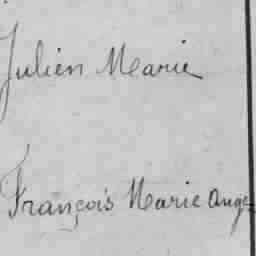 Julien Marie
François Marie Ange